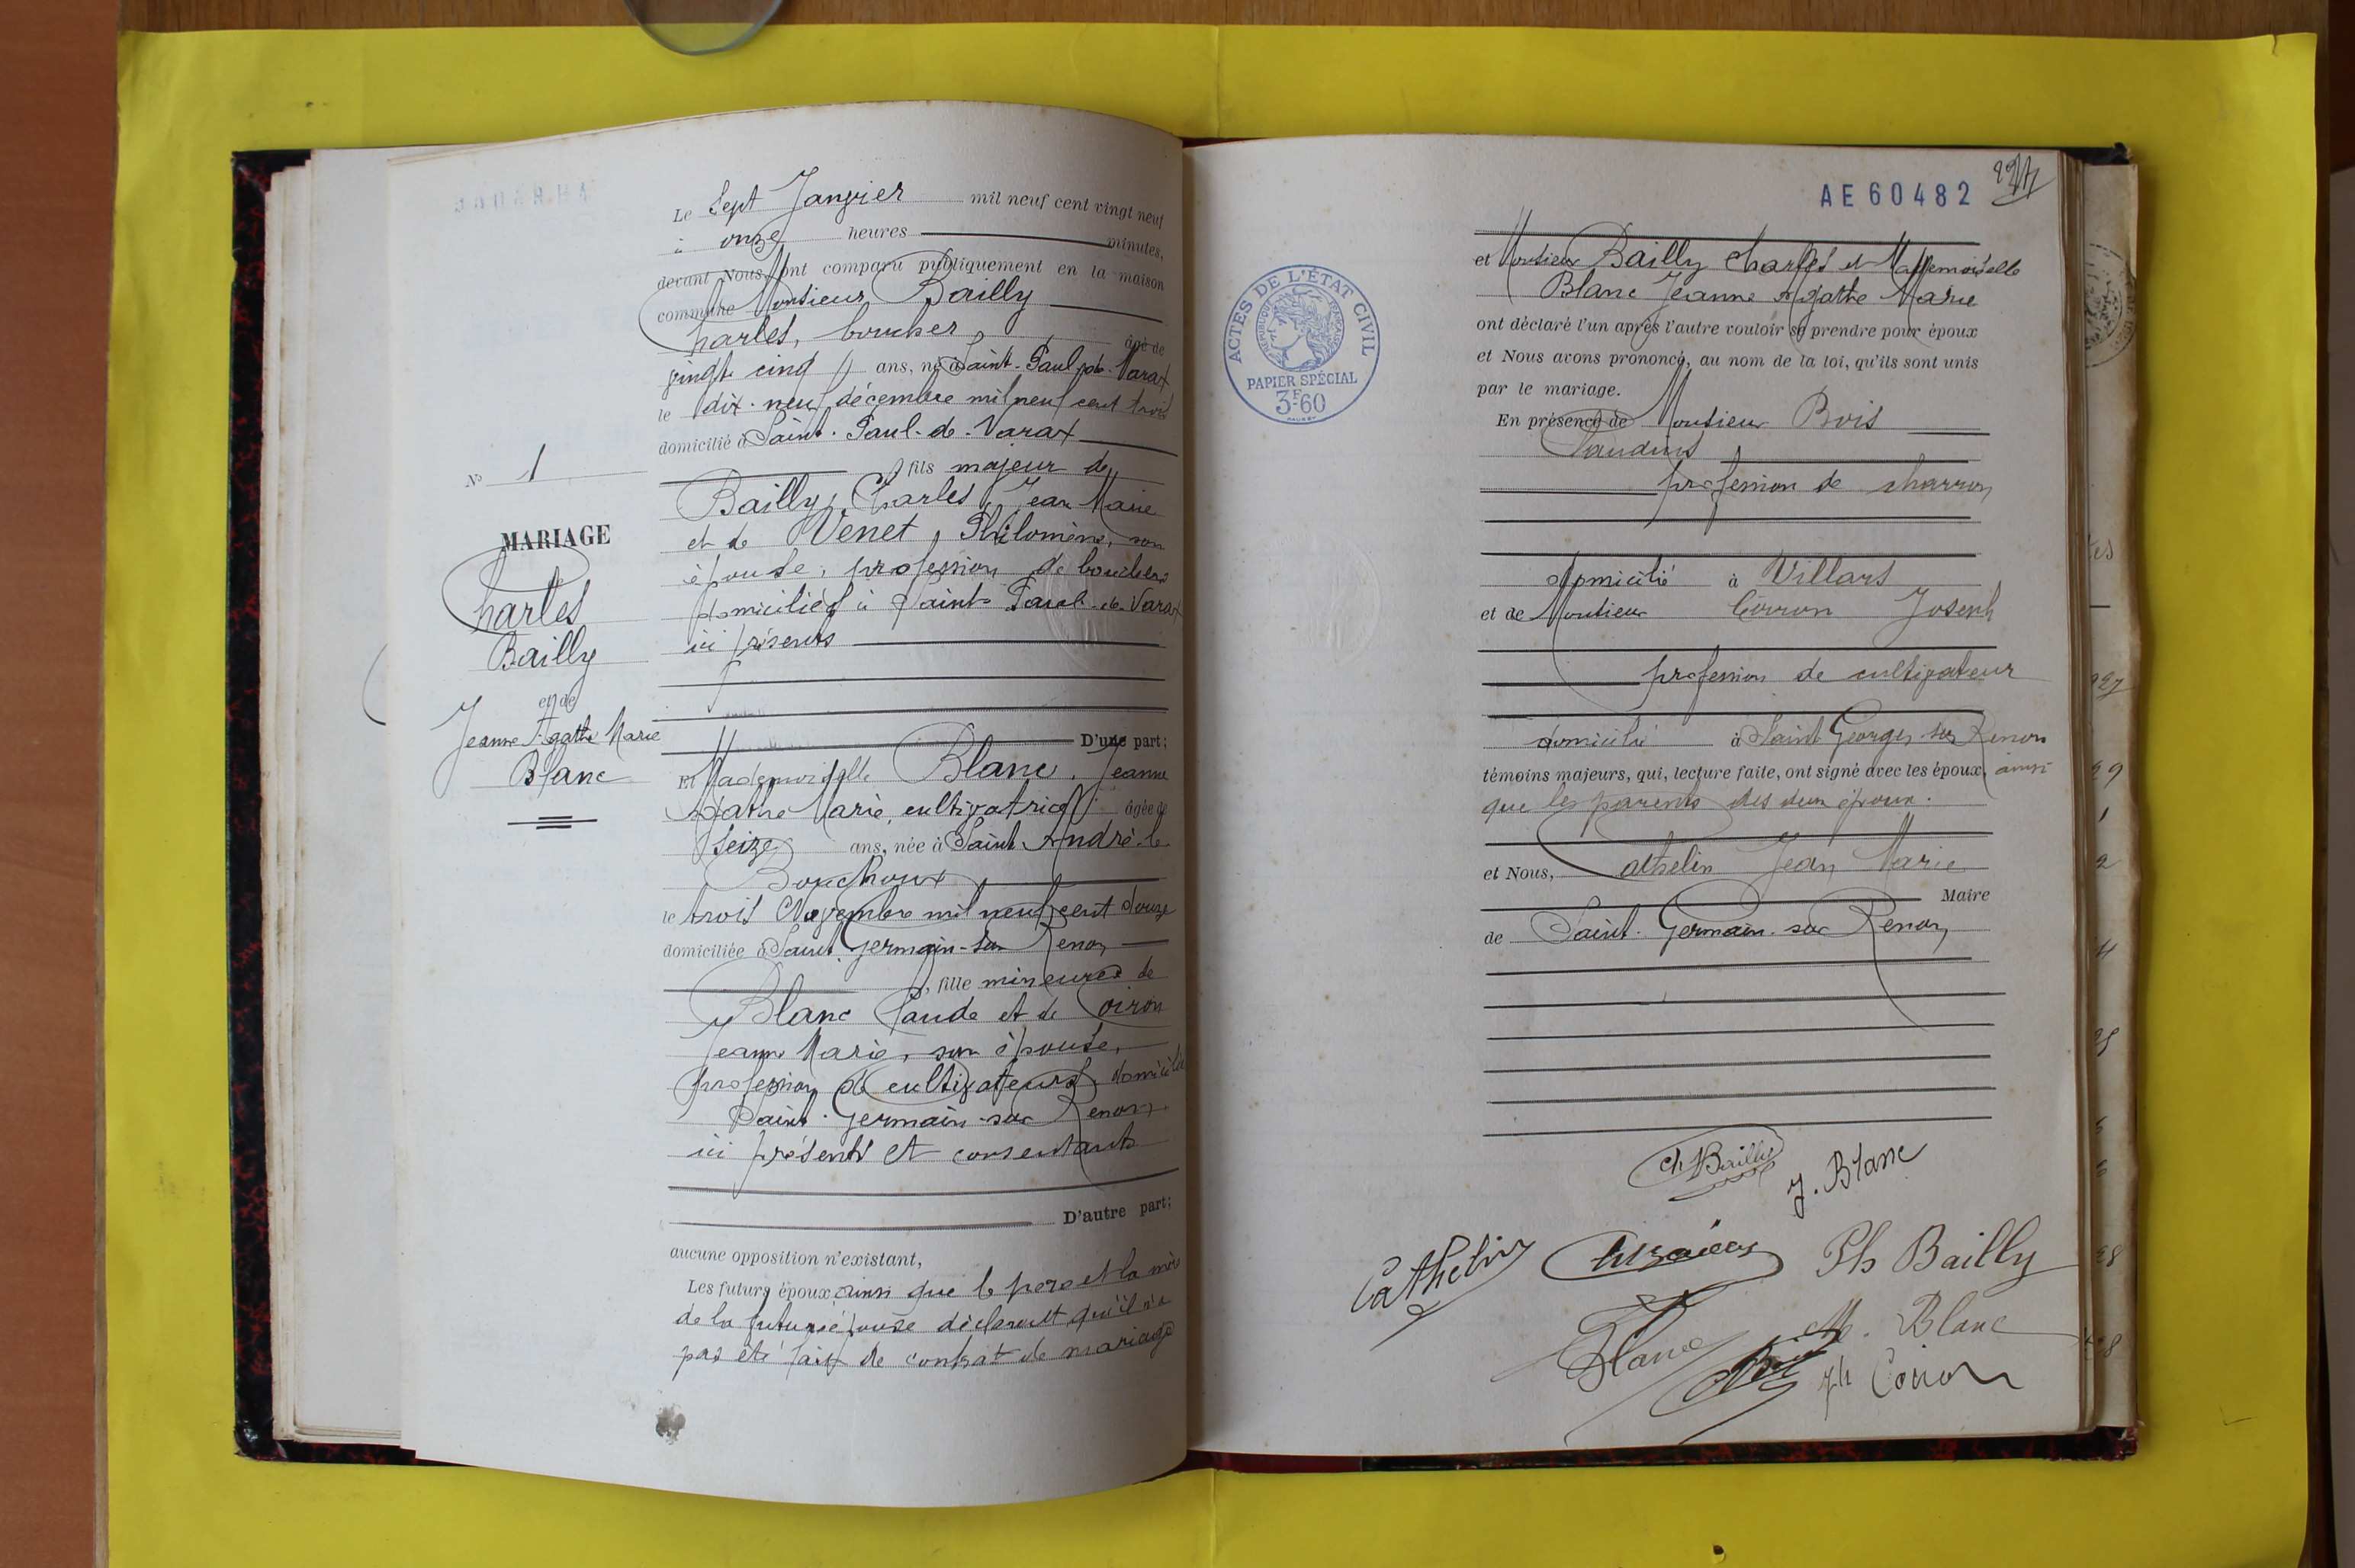 N° 1
MARIAGE
Charles
Bailly
et de
Jeanne Agathe Marie
Blanc
Le Sept Janvier mil neuf cent vingt neuf
à onze heures minutes,
devant Nous ont comparu publiquement en la maison
commune Monsieur Bailly
Charles, boucher, âgé de
vingt cinq ans, né à Saint-Paul-de-Varax
le dix-neuf décembre mil neuf cent trois
domicilié à Saint-Paul-de-Varax
fils majeur de
Bailly, Charles, Jean Marie
et de Venet, Philomène, son
épouse, profession de bouchers
domiciliés à Saint-Paul-de-Varax
ici présents
D'une part;
Et Mademoiselle Blanc, Jeanne
Agathe Marie, cultivatrice âgée de
seize ans, née à Saint André-le
Bouchoux
le trois Novembre mil neuf cent douze
domiciliée à Saint-Germain-sur Renon
, fille mineure de
Blanc Claude et de Coiron
Jeanne Marie, son épouse,
profession de cultivateurs, domiciliés
Saint-Germain-sur Renon
ici présents et consentants
D'autre part;
aucune opposition n'existant,
Les futurs époux, ainsi que le père et la mère
de la future épouse déclarent qu'il n'a
pas été fait de contrat de mariage
AE 60482
ACTES DE L'ÉTAT CIVIL
RÉPUBLIQUE FRANÇAISE
PAPIER SPÉCIAL
3F60
et Monsieur Bailly Charles et Mademoiselle
Blanc Jeanne Agathe Marie
ont déclaré l'un après l'autre vouloir se prendre pour époux
et Nous avons prononcé, au nom de la loi, qu'ils sont unis
par le mariage.
En présence de Monsieur Bois
Claudius
profession de charron
domicilié à Villars
et de Monsieur Coiron Joseph
profession de cultivateur
domicilié à Saint Georges-sur Renon
témoins majeurs, qui, lecture faite, ont signé avec les époux, ainsi
que les parents des deux époux.
et Nous, Cathelin Jean Marie
Maire
de Saint-Germain-sur Renon
ch Bailly
J. Blanc
Cathelin
Ph Bailly
Blanc
M. Blanc
Jh Coiron